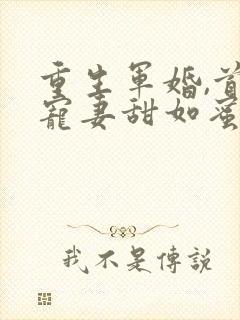 重生軍婚,首
寵妻甜如蜜
我不是傳說